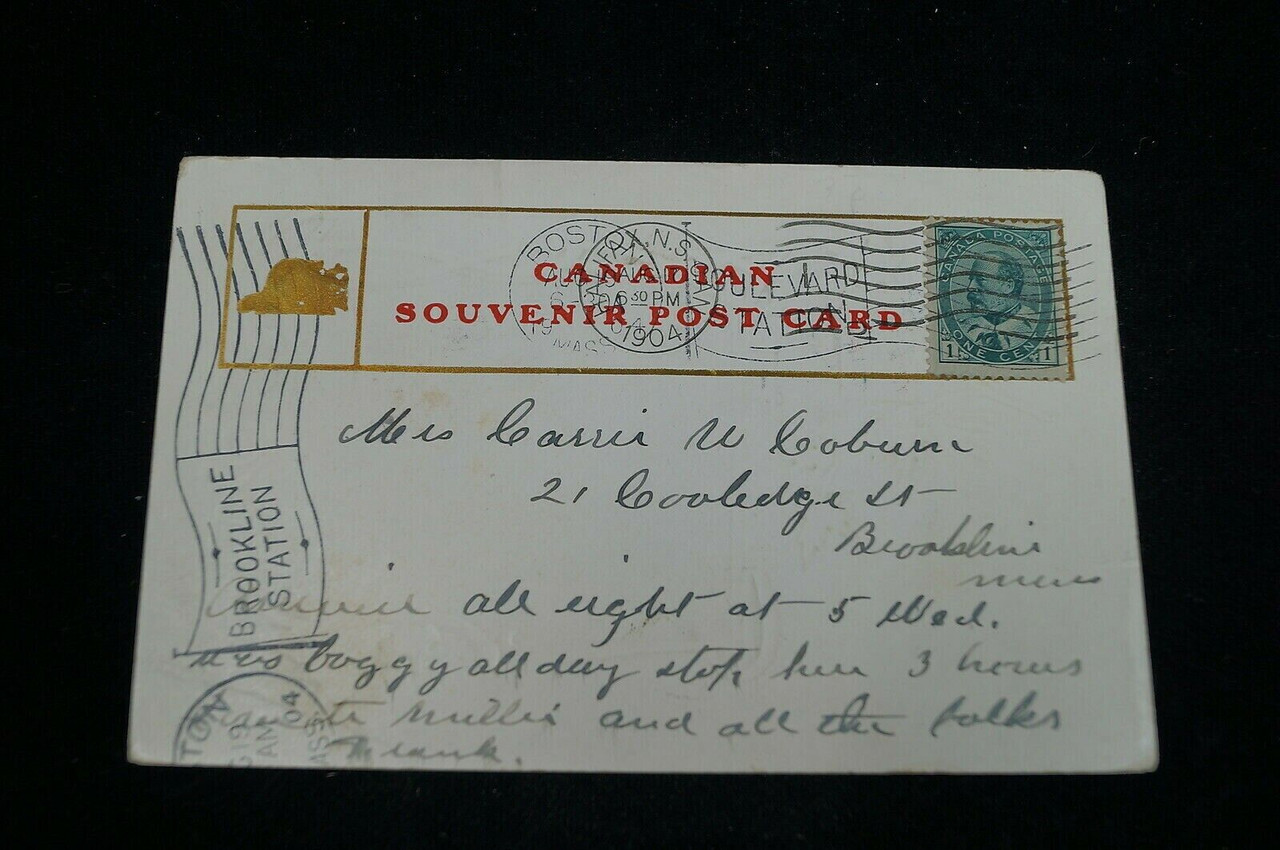 BOSTON
MASS.
HALIFAX, N.S.
6 30 PM
1904
BOULEVARD
STATION
CANADIAN
SOUVENIR POST CARD
CANADA POSTAGE
1 ONE CENT 1
Mrs Carrie W Coburn
21 Cooledge St
Brookline
Mass
BROOKLINE
STATION
all right at 5 Wed.
foggy all day stop here 3 hours
to Millie and all the folks
Frank.
TON
19
AM
04
ASS